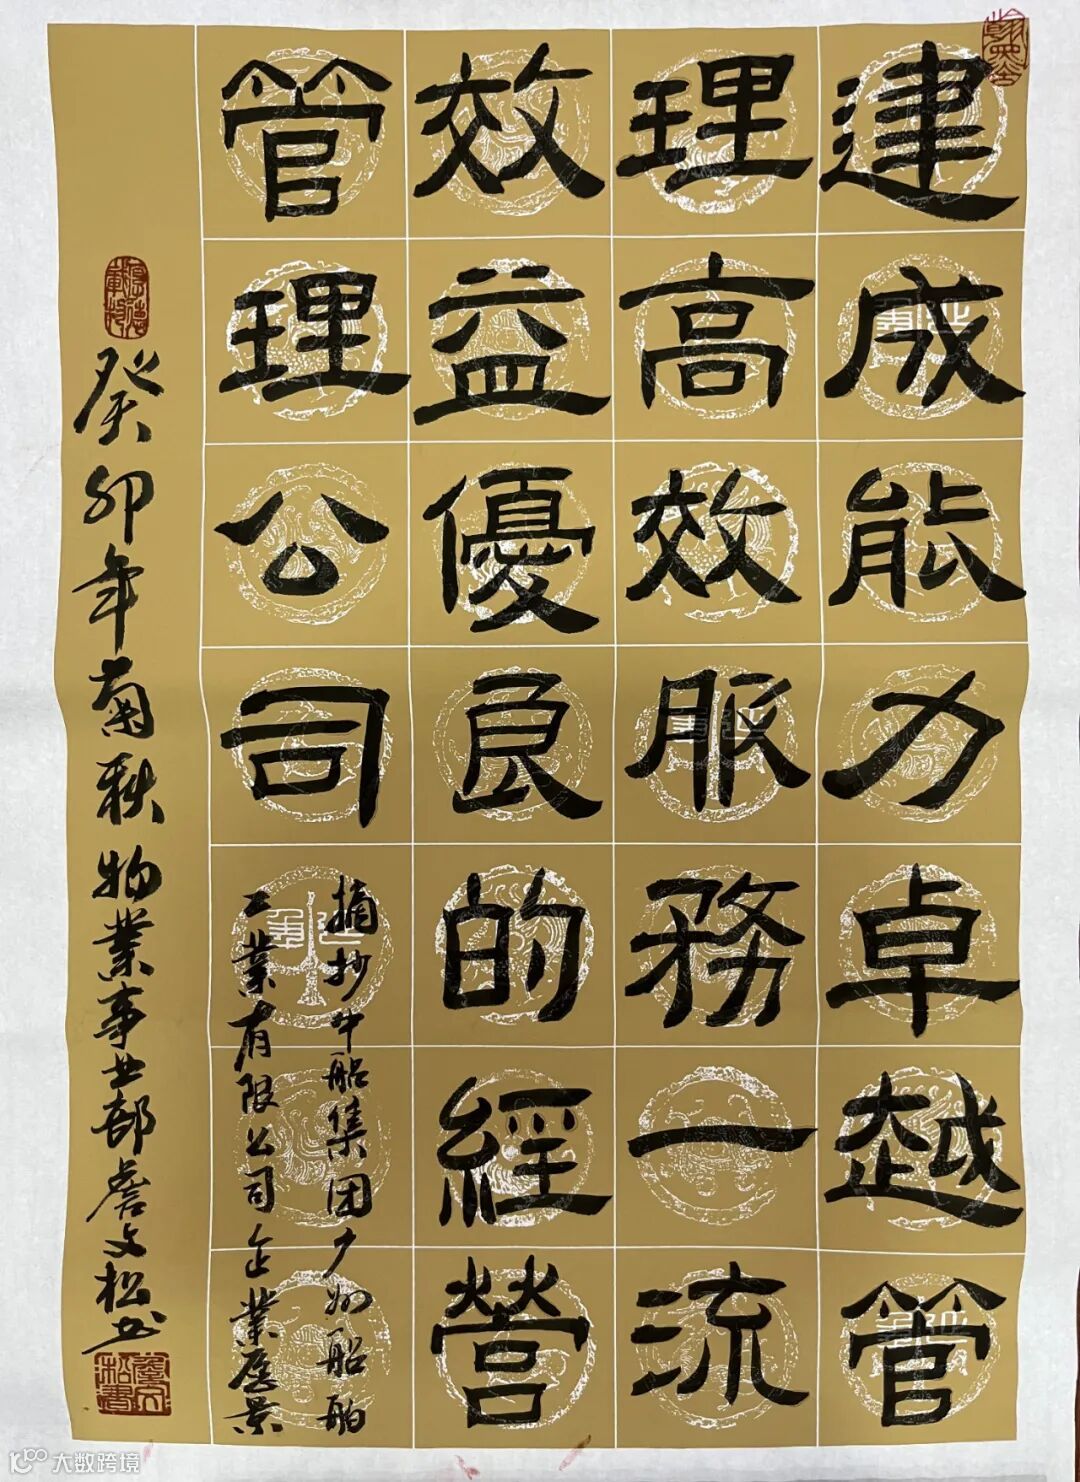 建成能力卓越管
理高效服務一流
效益優良的經營
管理公司
摘抄中船集团广州船舶
工业有限公司企业愿景
癸卯年菊秋物業事业部詹文松书
大数跨境